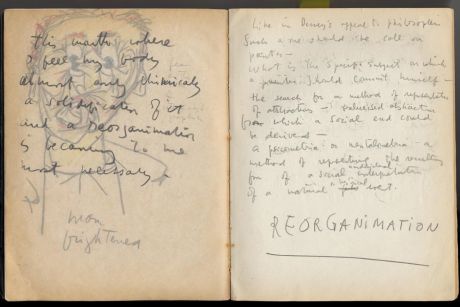 This month where
I feel my body
almost only chimicaly
a solidification of it
and a Reorganimation
is becoming to me
most necessary –
man
frightened
Like in Dewey's appeal to philosophers
Such a one should be call on
painters –
What is the specific subject on which
a painter should commit himself –
the search for a method of representation
of abstraction –
from which a social end could
be derived –
A psicometria or mentalmetria a
method of reporting the
for of a social interpretation
of a natural fact.
REORGANIMATION